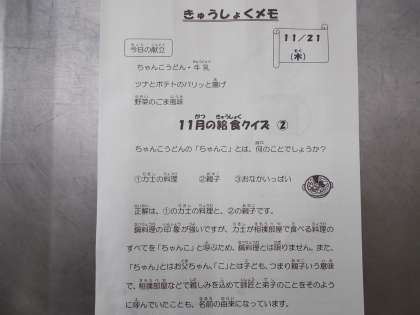 きゅうしょくメモ
11/21
(木)
今日の献立
ちゃんこうどん・牛乳
ツナとポテトのパリッと揚げ
野菜のごま風味
11月の給食クイズ ②
ちゃんこうどんの「ちゃんこ」とは、何のことでしょうか?
①力士の料理 ②親子 ③おなかいっぱい
正解は、①の力士の料理と、②の親子です。
鍋料理の印象が強いですが、力士が相撲部屋で食べる料理の
すべてを「ちゃんこ」と呼ぶため、鍋料理とは限りません。また、
「ちゃん」とはお父ちゃん、「こ」とは子ども、つまり親子という意味
で、相撲部屋などで親しみを込めて師匠と弟子のことをそのよう
に呼んでいたことも、名前の由来になっています。